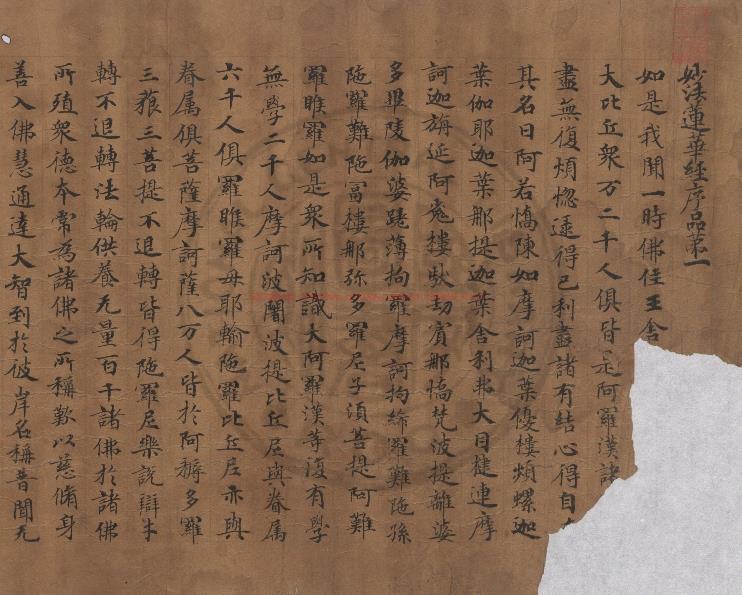 妙法蓮華經序品第一
如是我聞一時佛住王舍
大比丘衆万二千人俱皆是阿羅漢諸
盡無復煩惱逮得己利盡諸有結心得自
其名曰阿若憍陳如摩訶迦葉優樓頻螺迦
葉伽耶迦葉那提迦葉舍利弗大目揵連摩
訶迦旃延阿㝹樓馱劫賓那憍梵波提離婆
多畢陵伽婆蹉薄拘羅摩訶拘絺羅難陁孫
陁羅難陁冨樓那弥多羅尼子湏菩提阿難
羅睺羅如是衆所知識大阿羅漢等復有學
無學二千人摩訶波闍波提比丘尼與眷属
六千人俱羅睺羅母耶輸陁羅比丘尼亦與
眷属俱菩薩摩訶薩八万人皆於阿耨多羅
三藐三菩提不退轉皆得陁羅尼樂說辯才
轉不退轉法輪供養无量百千諸佛於諸佛
所殖衆德本常為諸佛之所稱歎以慈脩身
善入佛慧通達大智到於彼岸名稱普聞无